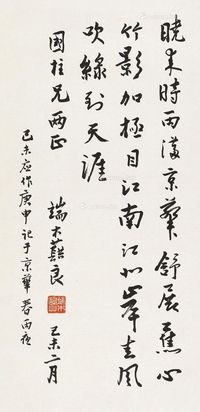 晓来时雨满京华舒展蕉心
竹影加极目江南江北岸东风
吹綠到天涯
國柱兄两正
端木蕻良
己未二月
己未应作庚申记于京华春雨夜